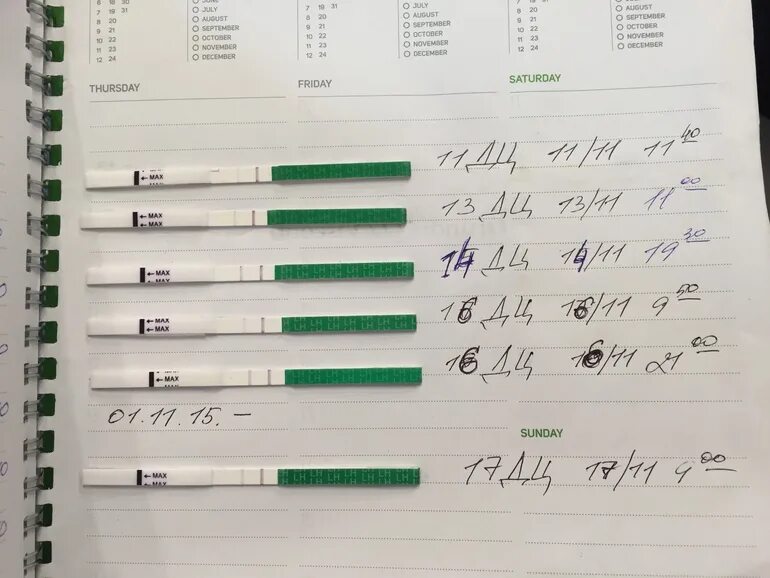 JUNE
7 19 31
8 20
9 21
10 22
11 23
12 24
JULY
AUGUST
SEPTEMBER
OCTOBER
NOVEMBER
DECEMBER
7 19 31
8 20
9 21
10 22
11 23
12 24
JULY
AUGUST
SEPTEMBER
OCTOBER
NOVEMBER
DECEMBER
7 19 31
8 20
9 21
10 22
11 23
12 24
JULY
AUGUST
SEPTEMBER
OCTOBER
NOVEMBER
DECEMBER
THURSDAY FRIDAY SATURDAY
← MAX 11 ДЦ 11/11 11 40
← MAX
← MAX 13 ДЦ 13/11 11 00
← MAX ДЦ /11 19 30
← MAX
← MAX 16 ДЦ 16/11 9 50
← MAX 16 ДЦ 16/11 21 00
01.11.15. –
SUNDAY
← MAX 17 ДЦ 17/11 9 00